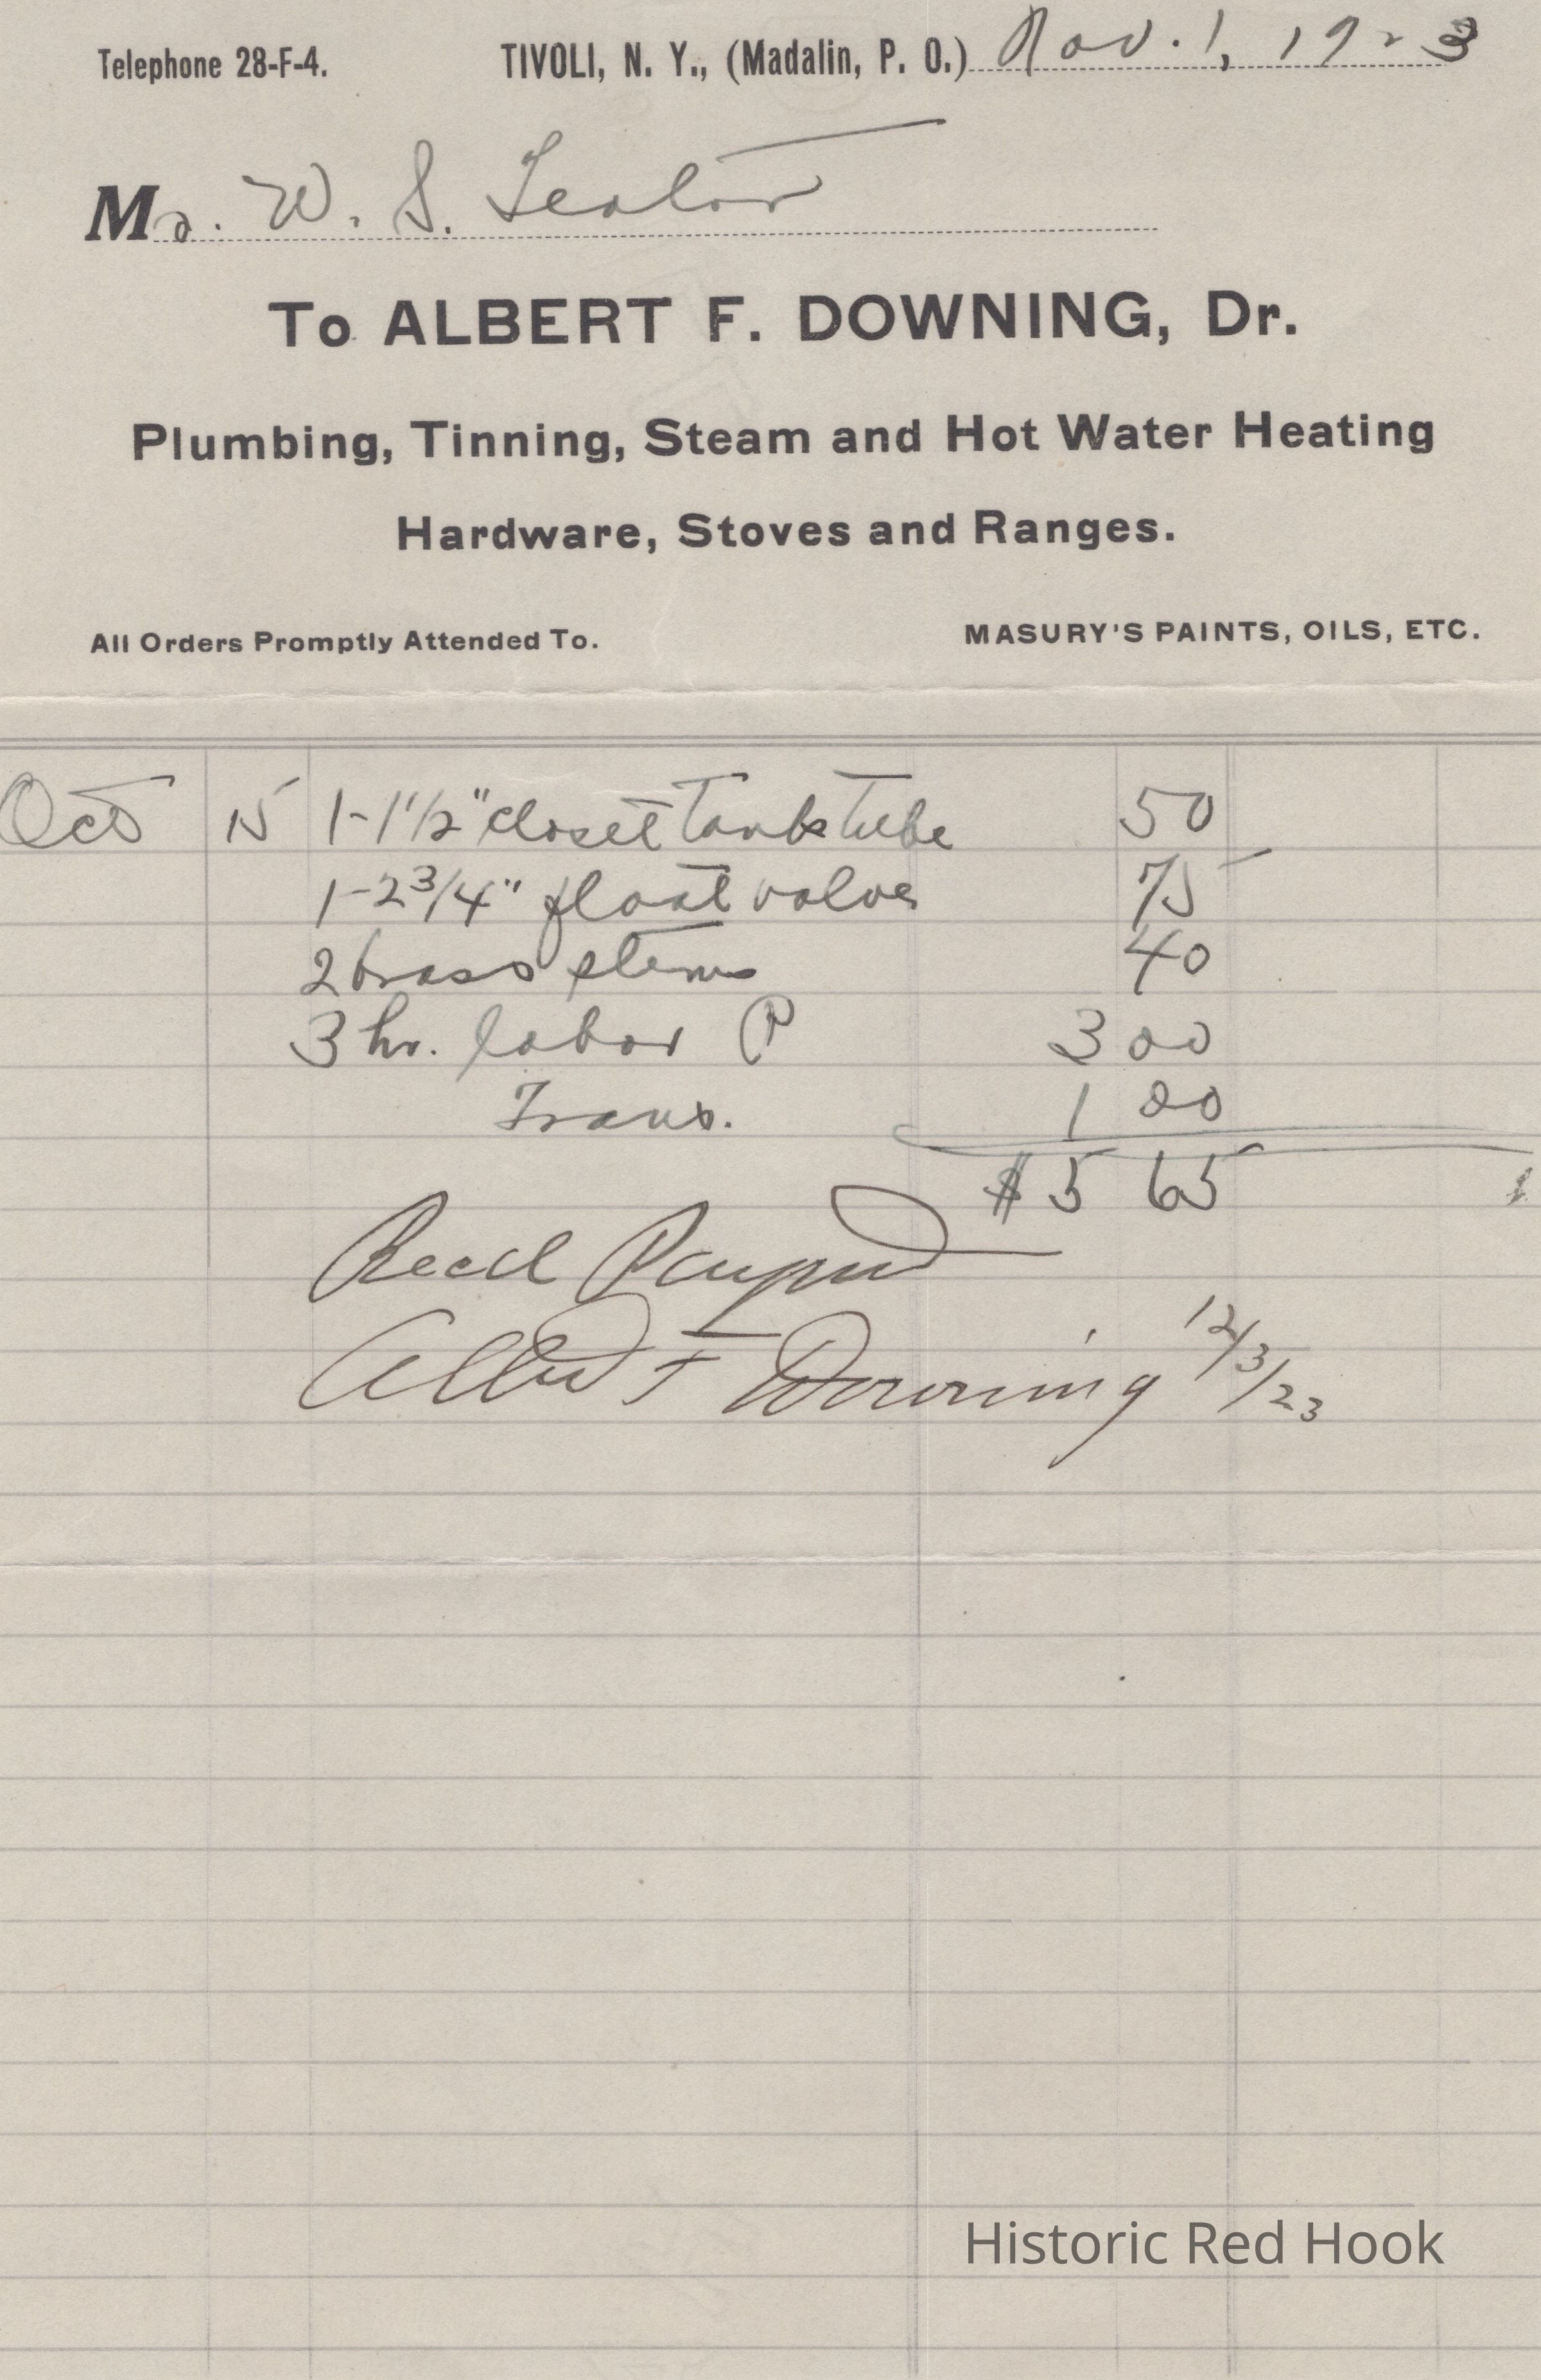 Telephone 28-F-4. TIVOLI, N. Y., (Madalin, P. O.) Nov. 1, 1923
Mr. W. S. Teator
To ALBERT F. DOWNING, Dr.
Plumbing, Tinning, Steam and Hot Water Heating
Hardware, Stoves and Ranges.
All Orders Promptly Attended To. MASURY'S PAINTS, OILS, ETC.
Oct 15 1-1 1/2" closet Tank Tube 50
1-2 3/4" float valve 75
2 brass stems 40
3 hr. labor P 3 00
Trans. 1 00
$5 65
Recd Payment
Albert F Downing 12/3/23
Historic Red Hook